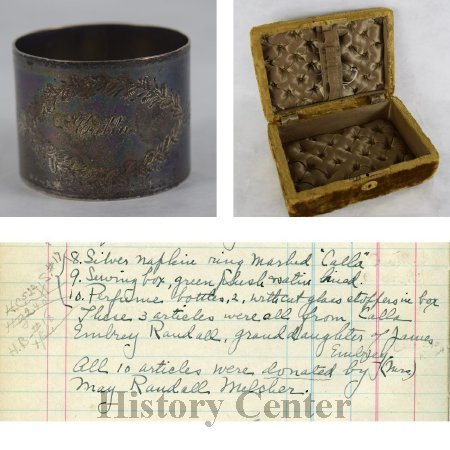 Calla
8. Silver napkin ring marked "Calla"
9. Sewing box, green plush & satin lined.
10. Perfume bottles, 2, without glass stoppers in box
These 3 articles were all from Calla
Embrey Randall, grand daughter of James
Embrey.
All 10 articles were donated by (Mrs)
May Randall Melcher.
History Center